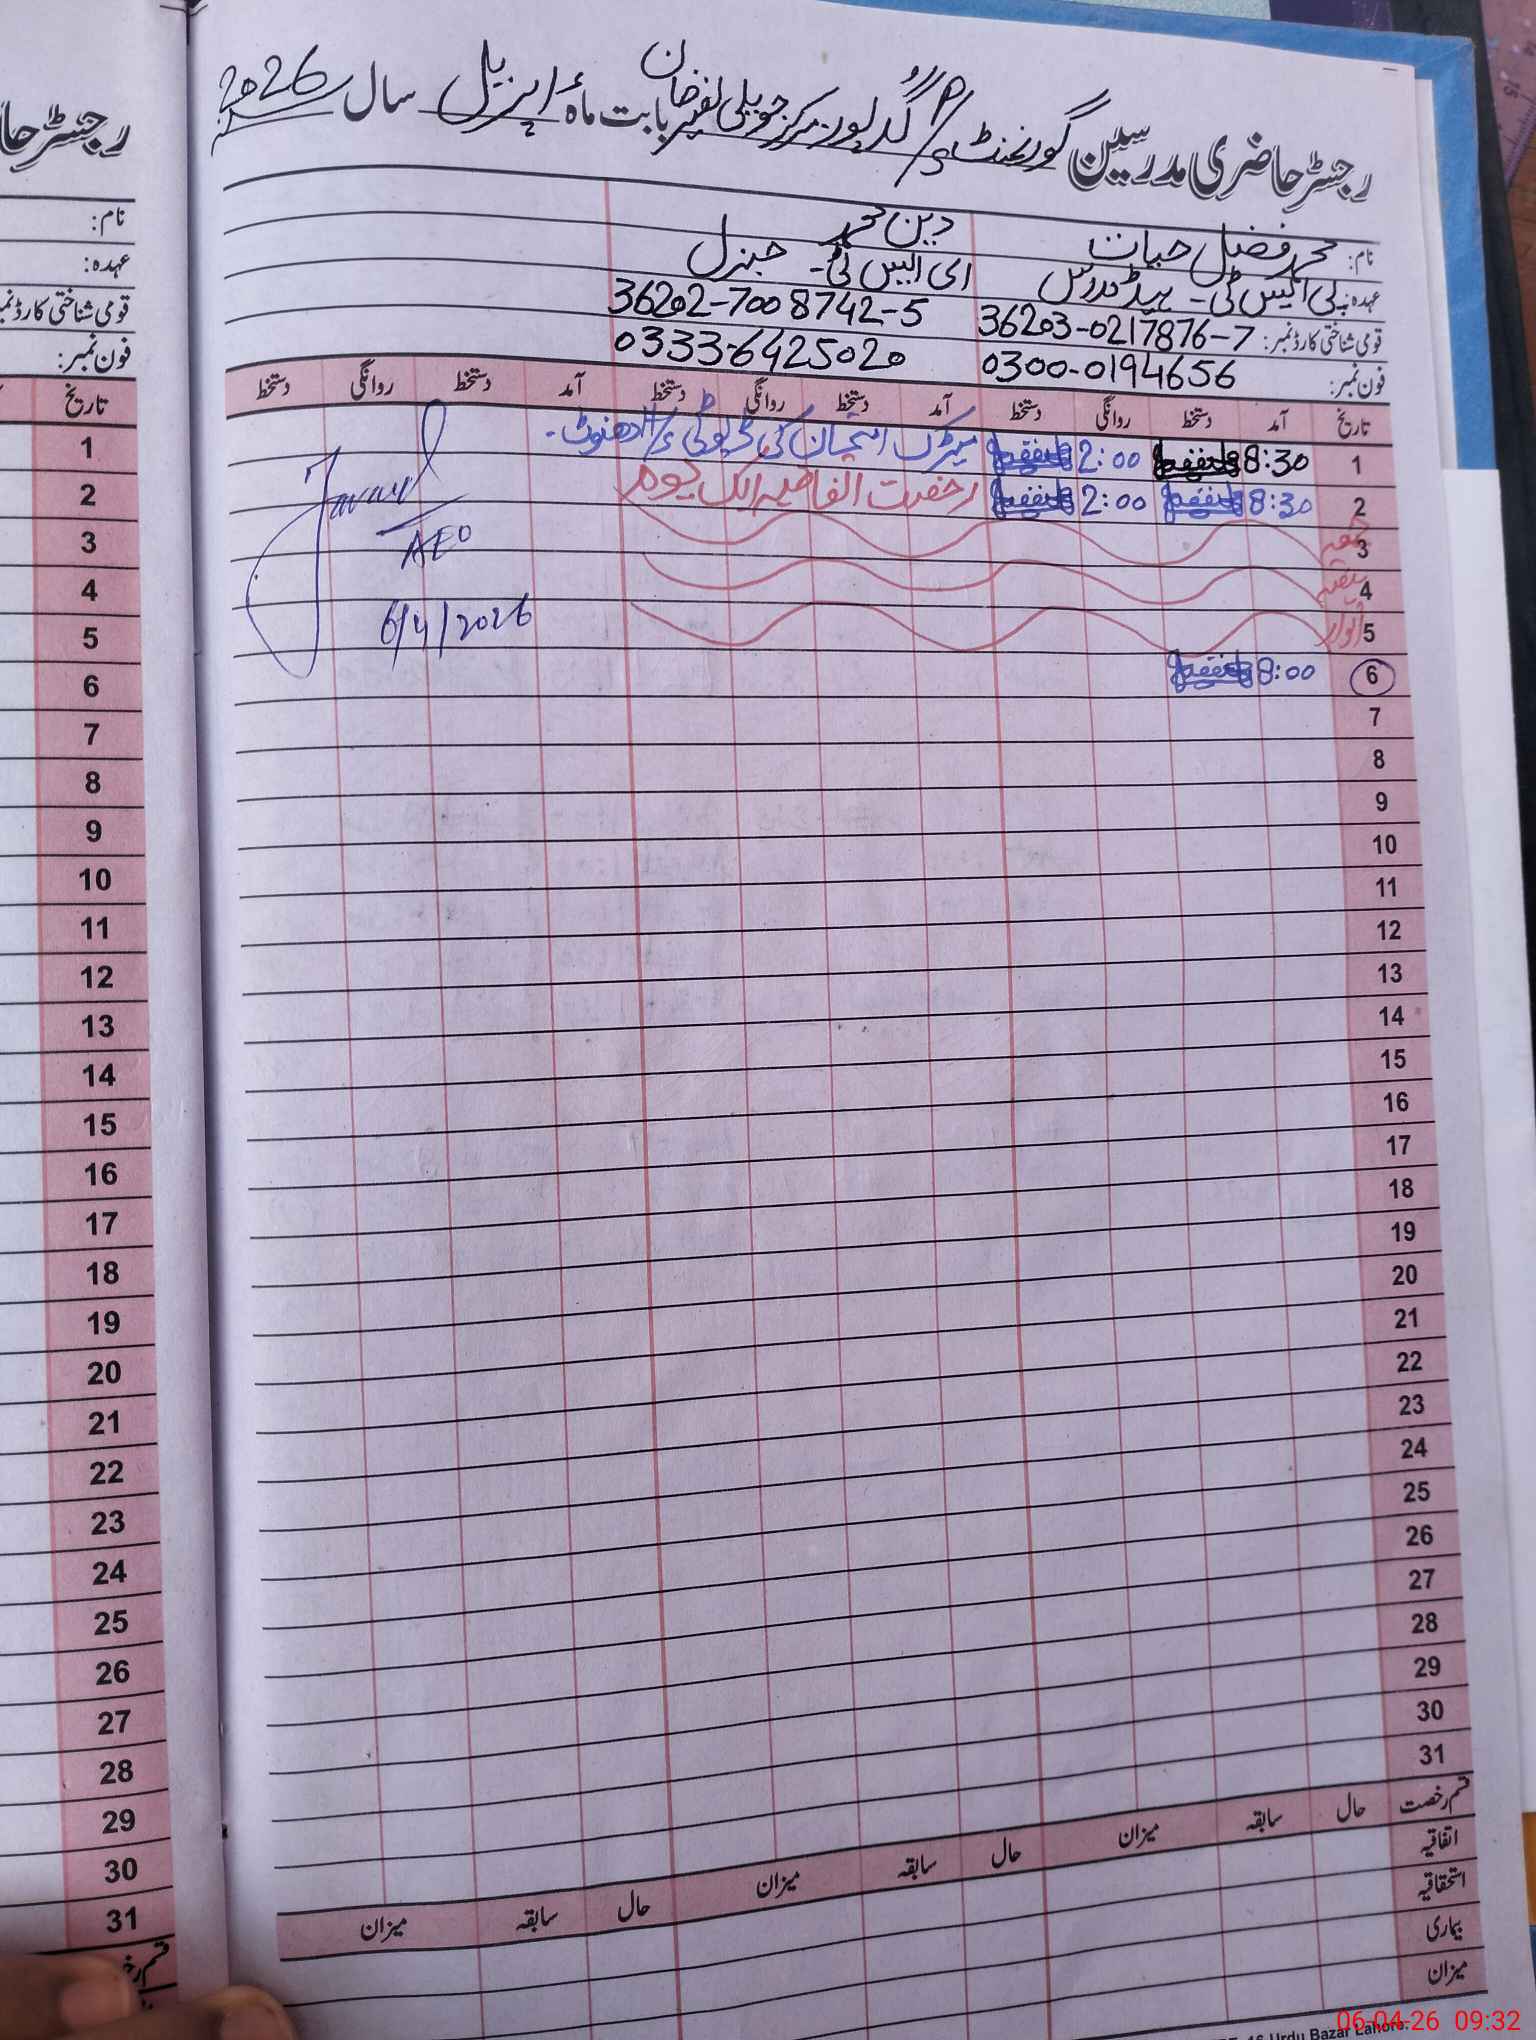 رجسٹر حاضری مدرسین گورنمنٹ P/S گدپور مرکز حویلی نصیر خان بابت ماہ اپریل سال 2026
نام: محمد فضل حیات دین محمد
عہدہ: پی ایس ٹی - ہیڈ مدرس ای ایس ٹی - جنرل
قومی شناختی کارڈ نمبر: 36203-0217876-7 36202-7008742-5
فون نمبر: 0300-0194656 0333-6425020
تاریخ آمد دستخط روانگی دستخط آمد دستخط روانگی دستخط آمد دستخط روانگی دستخط
1 8:30 2:00 میٹرک امتحان کی ڈیوٹی
2 8:30 2:00 رخصت اتفاقیہ ایک یوم
3 جمعہ
4 ہفتہ
5 اتوار
6 8:00
Javaid
AEO
6/4/2026
7
8
9
10
11
12
13
14
15
16
17
18
19
20
21
22
23
24
25
26
27
28
29
30
31
قسم رخصت حال سابقہ میزان حال سابقہ میزان حال سابقہ میزان
اتفاقیہ
استحقاقیہ
بیماری
میزان
Urdu Bazar Lahore.
06-04-26 09:32
رجسٹر حا
نام:
عہدہ:
قومی شناختی کارڈ نمبر
فون نمبر:
تاریخ
1
2
3
4
5
6
7
8
9
10
11
12
13
14
15
16
17
18
19
20
21
22
23
24
25
26
27
28
29
30
31